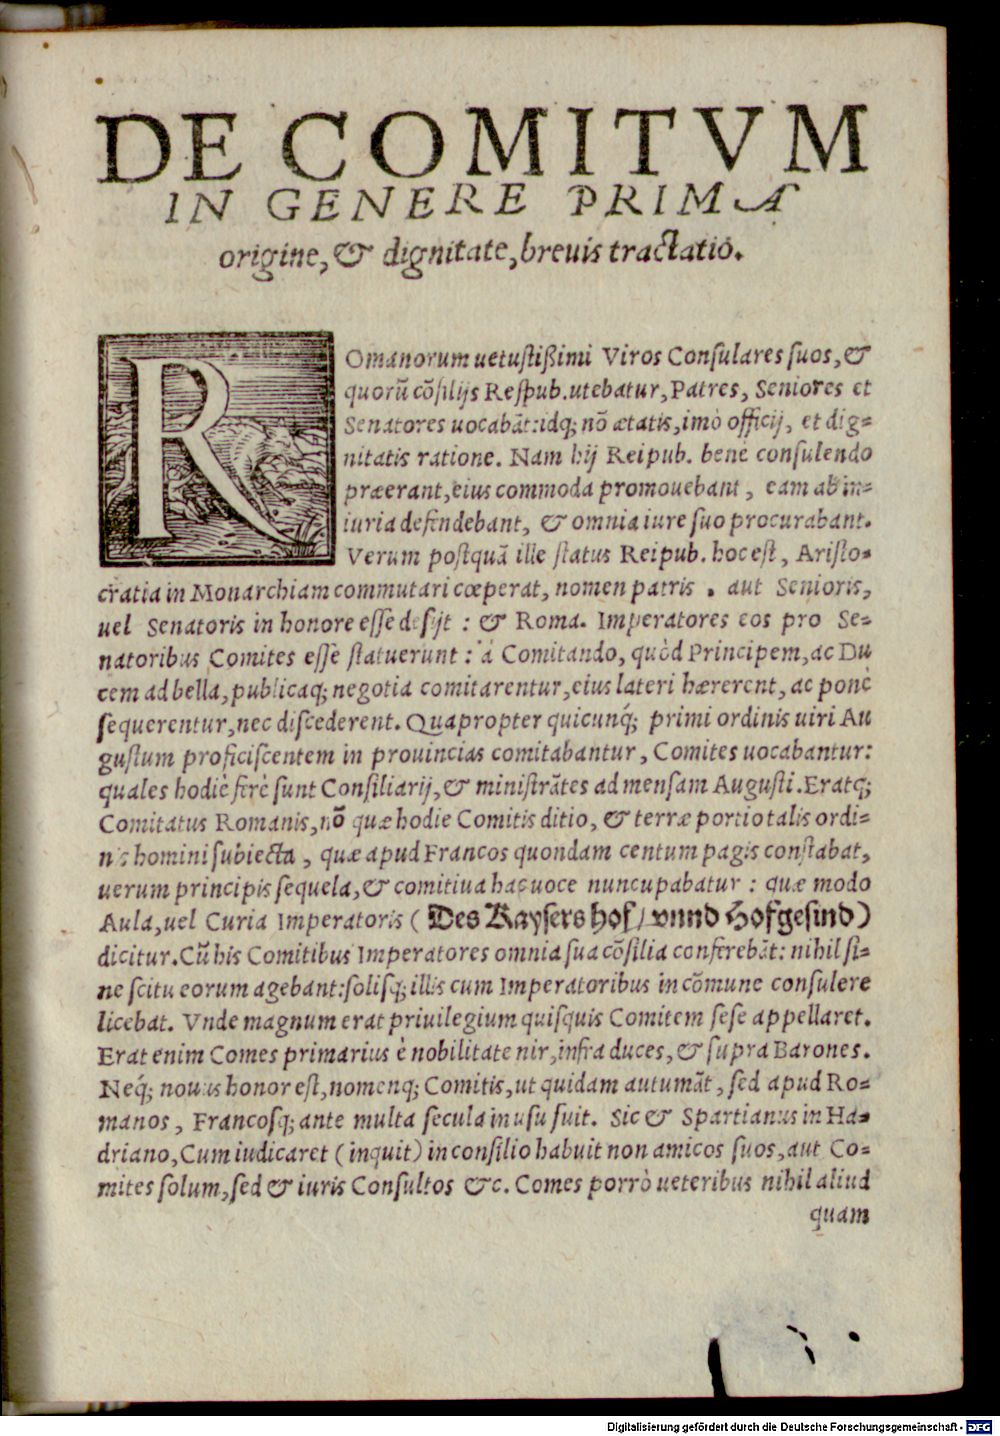 DE COMITVM
IN GENERE PRIMA
origine, & dignitate, breuis tractatio.
ROmanorum uetustißimi Viros Consulares suos, &
quorũ cõsilijs Respub. utebatur, Patres, Seniores et
Senatores uocabãt: idq; nõ ætatis, imò officij, et dig=
nitatis ratione. Nam hij Reipub. benè consulendo
præerant, eius commoda promouebant, eam ab in=
iuria defendebant, & omnia iure suo procurabant.
Verum postquã ille status Reipub. hoc est, Aristo=
cratia in Monarchiam commutari cœperat, nomen patris . aut Senioris,
uel Senatoris in honore esse desijt : & Roma. Imperatores eos pro Se=
natoribus Comites esse statuerunt : à Comitando, quòd Principem, ac Du
cem ad bella, publicaq; negotia comitarentur, eius lateri hærerent, ac ponè
sequerentur, nec discederent. Quapropter quicunq́; primi ordinis uiri Au
gustum proficiscentem in prouincias comitabantur, Comites uocabantur:
quales hodiè ferè sunt Consiliarij, & ministrãtes ad mensam Augusti. Eratq;
Comitatus Romanis, nõ quæ hodie Comitis ditio, & terræ portio talis ordi=
nis homini subiecta, quæ apud Francos quondam centum pagis constabat,
uerum principis sequela, & comitiua hac uoce nuncupabatur : quæ modo
Aula, uel Curia Imperatoris ( Des Kaysers hof / vnnd Hofgesind )
dicitur. Cũ his Comitibus Imperatores omnia sua cõsilia conferebãt: nihil si=
ne scitu eorum agebant: solisq; illis cum Imperatoribus in cõmune consulere
licebat. Vnde magnum erat priuilegium quisquis Comitem sese appellaret.
Erat enim Comes primarius è nobilitate uir, infra duces, & supra Barones.
Neq́; nouus honor est, nomenq; Comitis, ut quidam autumãt, sed apud Ro=
manos, Francosq; ante multa secula in usu fuit. Sic & Spartianus in Ha=
driano, Cum iudicaret ( inquit ) in consilio habuit non amicos suos, aut Co=
mites solum, sed & iuris Consultos &c. Comes porrò ueteribus nihil aliud
quam
Digitalisierung gefördert durch die Deutsche Forschungsgemeinschaft - DFG